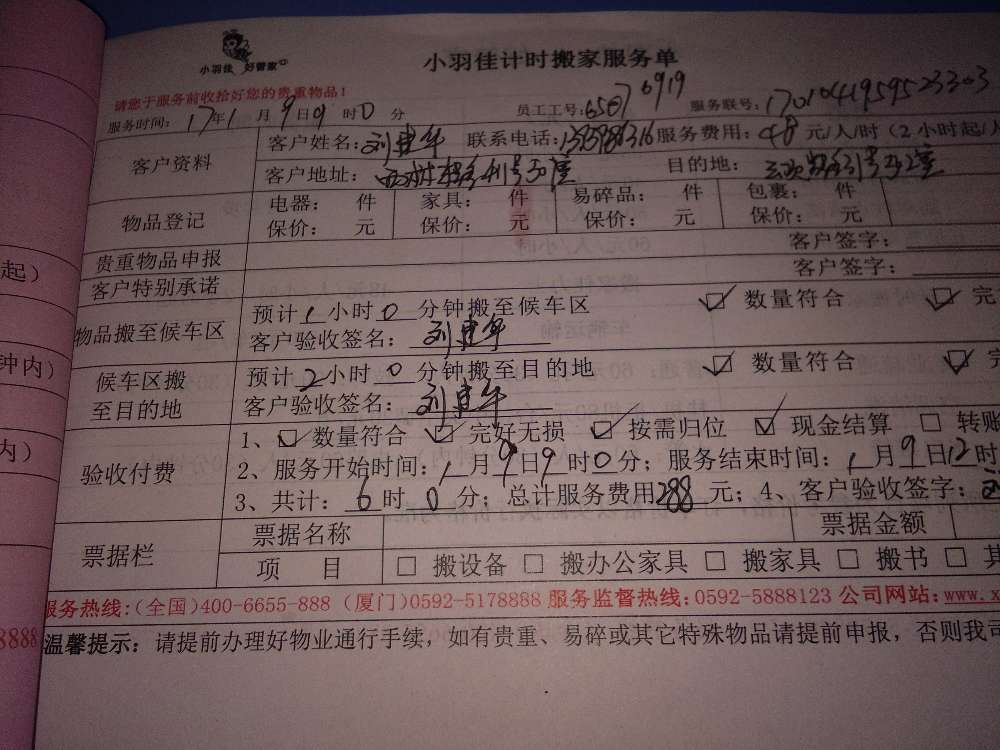 小羽佳 好管家
小羽佳计时搬家服务单
请您于服务前收拾好您的贵重物品！
服务时间：17年1月9日9时0分 员工工号：6507 6919 服务联号：1701041959523303
客户资料 客户姓名：刘建华 联系电话： 服务费用：48元/人/时（2小时起/
客户地址： 目的地：
物品登记 电器： 件 家具： 件 易碎品： 件 包裹： 件
保价： 元 保价： 元 保价： 元 保价： 元
贵重物品申报 客户签字：
客户特别承诺 客户签字：
物品搬至候车区 预计1小时0分钟搬至候车区 ☑ 数量符合 ☑ 完
客户验收签名：刘建华
候车区搬至目的地 预计2小时0分钟搬至目的地 ☑ 数量符合 ☑ 完
客户验收签名：刘建华
验收付费 1、☑ 数量符合 ☑ 完好无损 ☑ 按需归位 ☑ 现金结算 □ 转账
2、服务开始时间：1月9日9时0分；服务结束时间：1月9日12时
3、共计：6时0分；总计服务费用288元；4、客户验收签字：
票据栏 票据名称 票据金额
项 目 □ 搬设备 □ 搬办公家具 □ 搬家具 □ 搬书 □ 其
服务热线：（全国）400-6655-888（厦门）0592-5178888 服务监督热线：0592-5888123 公司网站：www.x
温馨提示：请提前办理好物业通行手续，如有贵重、易碎或其它特殊物品请提前申报，否则我司
起）
钟内）
内）
8888